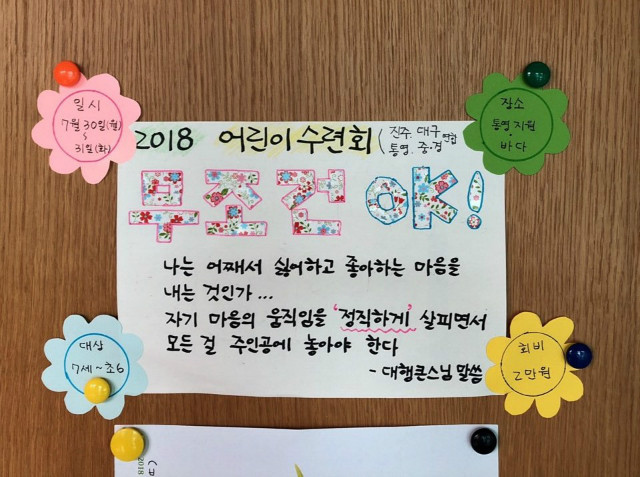 일시
7월 30일(월)
~
31일(화)
장소
통영지원
바다
2018 어린이 수련회 (진주. 대구
통영. 중·경 연합
무조건 OK!
나는 어째서 싫어하고 좋아하는 마음을
내는 것인가...
자기 마음의 움직임을 '정직하게' 살피면서
모든 걸 주인공에 놓아야 한다
- 대행큰스님 말씀
대상
7세~초6
회비
2만원
2018